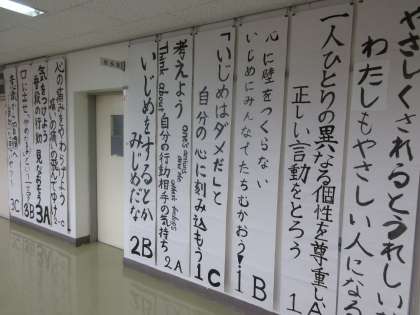 やさしくされるとうれしい
わたしもやさしい人になる
一人ひとりの異なる個性を尊重し
正しい言動をとろう
1A
心に壁をつくらない
いじめにみんなでたちむかおう!
1B
「いじめはダメだ」と
自分の心に刻み込もう
1C
考えよう
Think about 自分の行動相手の気持ち
2A
いじめをするとか
みじめだな
2B
心の痛みをやわらげよう
気をつけよう
普段の行動 見なおそう
3A
3B
3C